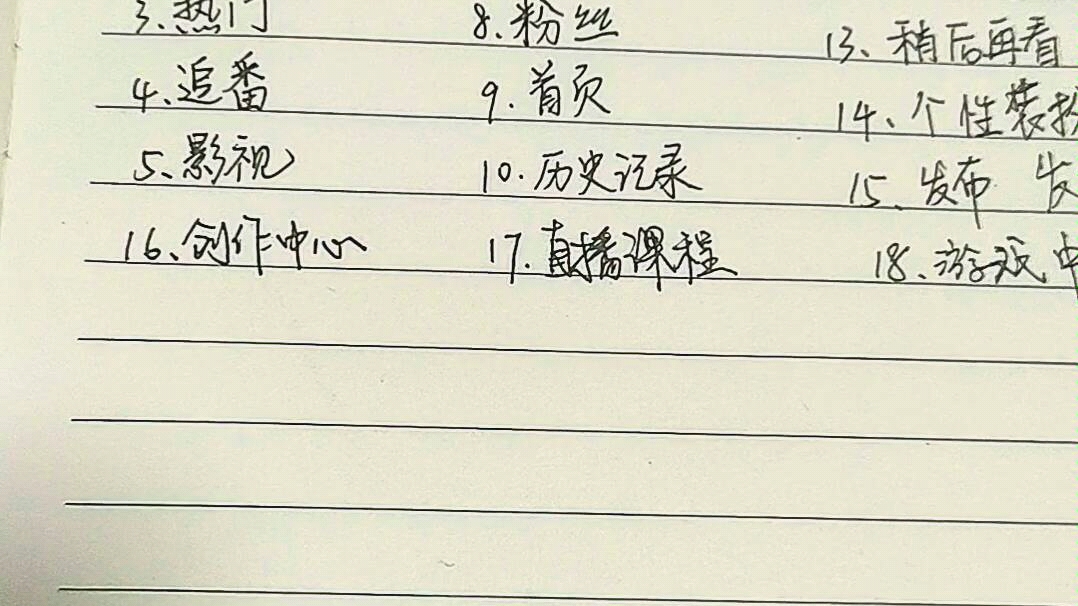 3、热门 8、粉丝 13、稍后再看
4、追番 9、首页 14、个性装扮
5、影视 10、历史记录 15、发布 发
16、创作中心 17、直播课程 18、游戏中